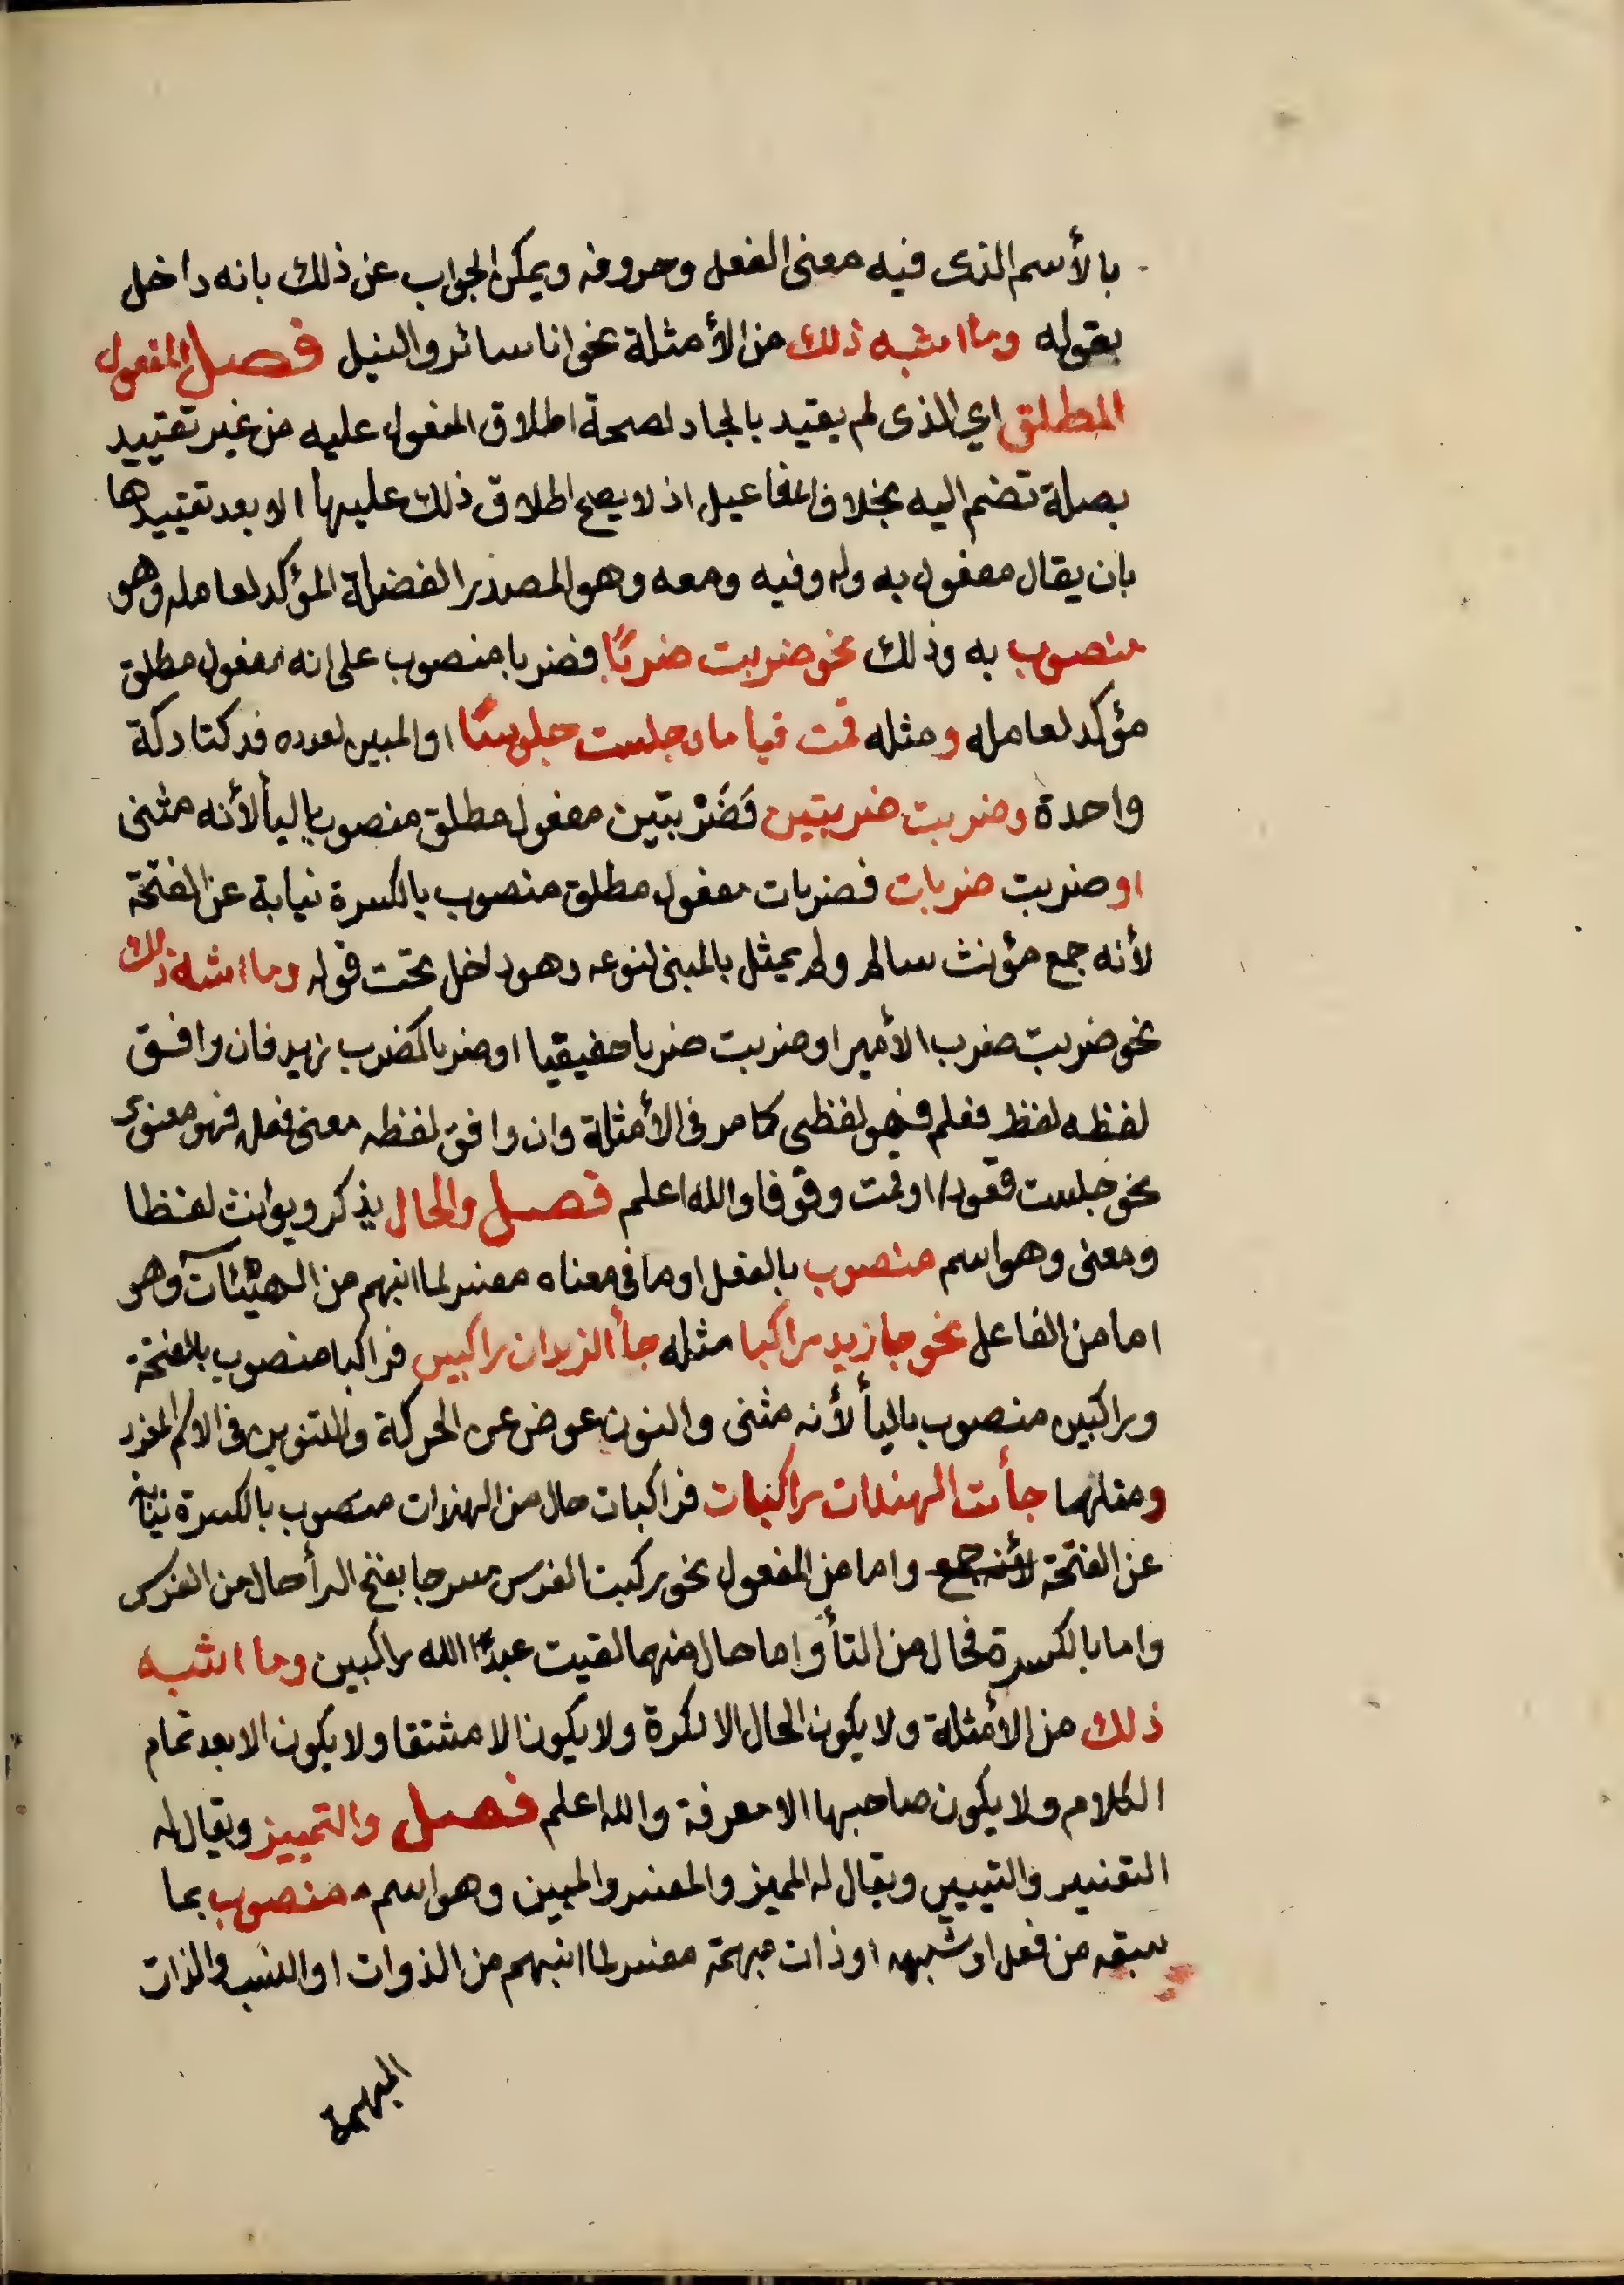 بالأسم الذى فيه معنى الفعل وحروفه ويمكن الجواب عن ذلك بانه داخل
بقوله وما اشبه ذلك من الأمثلة نحو انا سائر والنيل فصل المفعول
المطلق اي الذى لم يقيد بالجار لصحة اطلاق المفعول عليه من غير تقييد
بصلة تضم اليه بخلاف المفاعيل اذ لا يصح اطلاق ذلك عليها الا بعد تقييدها
بان يقال مفعول به وله وفيه ومعه وهو المصدر الفضلة المؤكد لعامله وهو
منصوب به وذلك نحو ضربت ضربًا فضربا منصوب على انه مفعول مطلق
مؤكد لعامله ومثله قمت قياما وجلست جلوسًا او المبين لعدده فدكتا دكة
واحدة وضربت ضربتين فَضَرْبتين مفعول مطلق منصوب باليأ لأنه مثنى
او ضربت ضربات فضربات مفعول مطلق منصوب بالكسرة نيابة عن الفتحة
لأنه جمع مؤنث سالم ولم يمثل بالمبنى لنوعه وهو داخل تحت قوله وما اشبه ذلك
نحو ضربت ضرب الأمير او ضربت ضربا حقيقيا او ضربا كضرب زيد فان وافق
لفظه لفظ فعلم فهو لفظى كما مر فى الأمثلة وان وافق لفظه معنى فعله فهو معنوى
نحو جلست قعودا او قمت وقوفا والله اعلم فصل والحال يذكر ويؤنث لفظا
ومعنى وهو اسم منصوب بالفعل او ما فى معناه مفسر لما انبهم من الهيئآت وهو
اما من الفاعل نحو جا زيد راكبا مثله جأ الزيدان راكبين فراكبا منصوب بالفتحة
وراكبين منصوب باليأ لأنه مثنى والنون عوض عن الحركة والتنوين فى الاسم المفرد
ومثلهما جأت الهندات راكبات فراكبات حال من الهندات منصوب بالكسرة نيابة
عن الفتحة لأنه جمع واما من المفعول نحو ركبت الفرس مسرجا بفتح الرأ حال من الفرس
واما بالكسرة فحال من التأ واما حال منهما لقيت عبد الله راكبين وما اشبه
ذلك من الأمثلة ولا يكون الحال الا نكرة ولا يكون الا مشتقا ولا يكون الا بعد تمام
الكلام ولا يكون صاحبها الا معرفة والله اعلم فصل والتمييز ويقال له
التفسير والتبيين ويقال له المميز والمفسر والمبين وهو اسم منصوب بما
سبقه من فعل او شبهه او ذات مبهمة مفسر لما انبهم من الذوات او النسب والذات
المبهمة